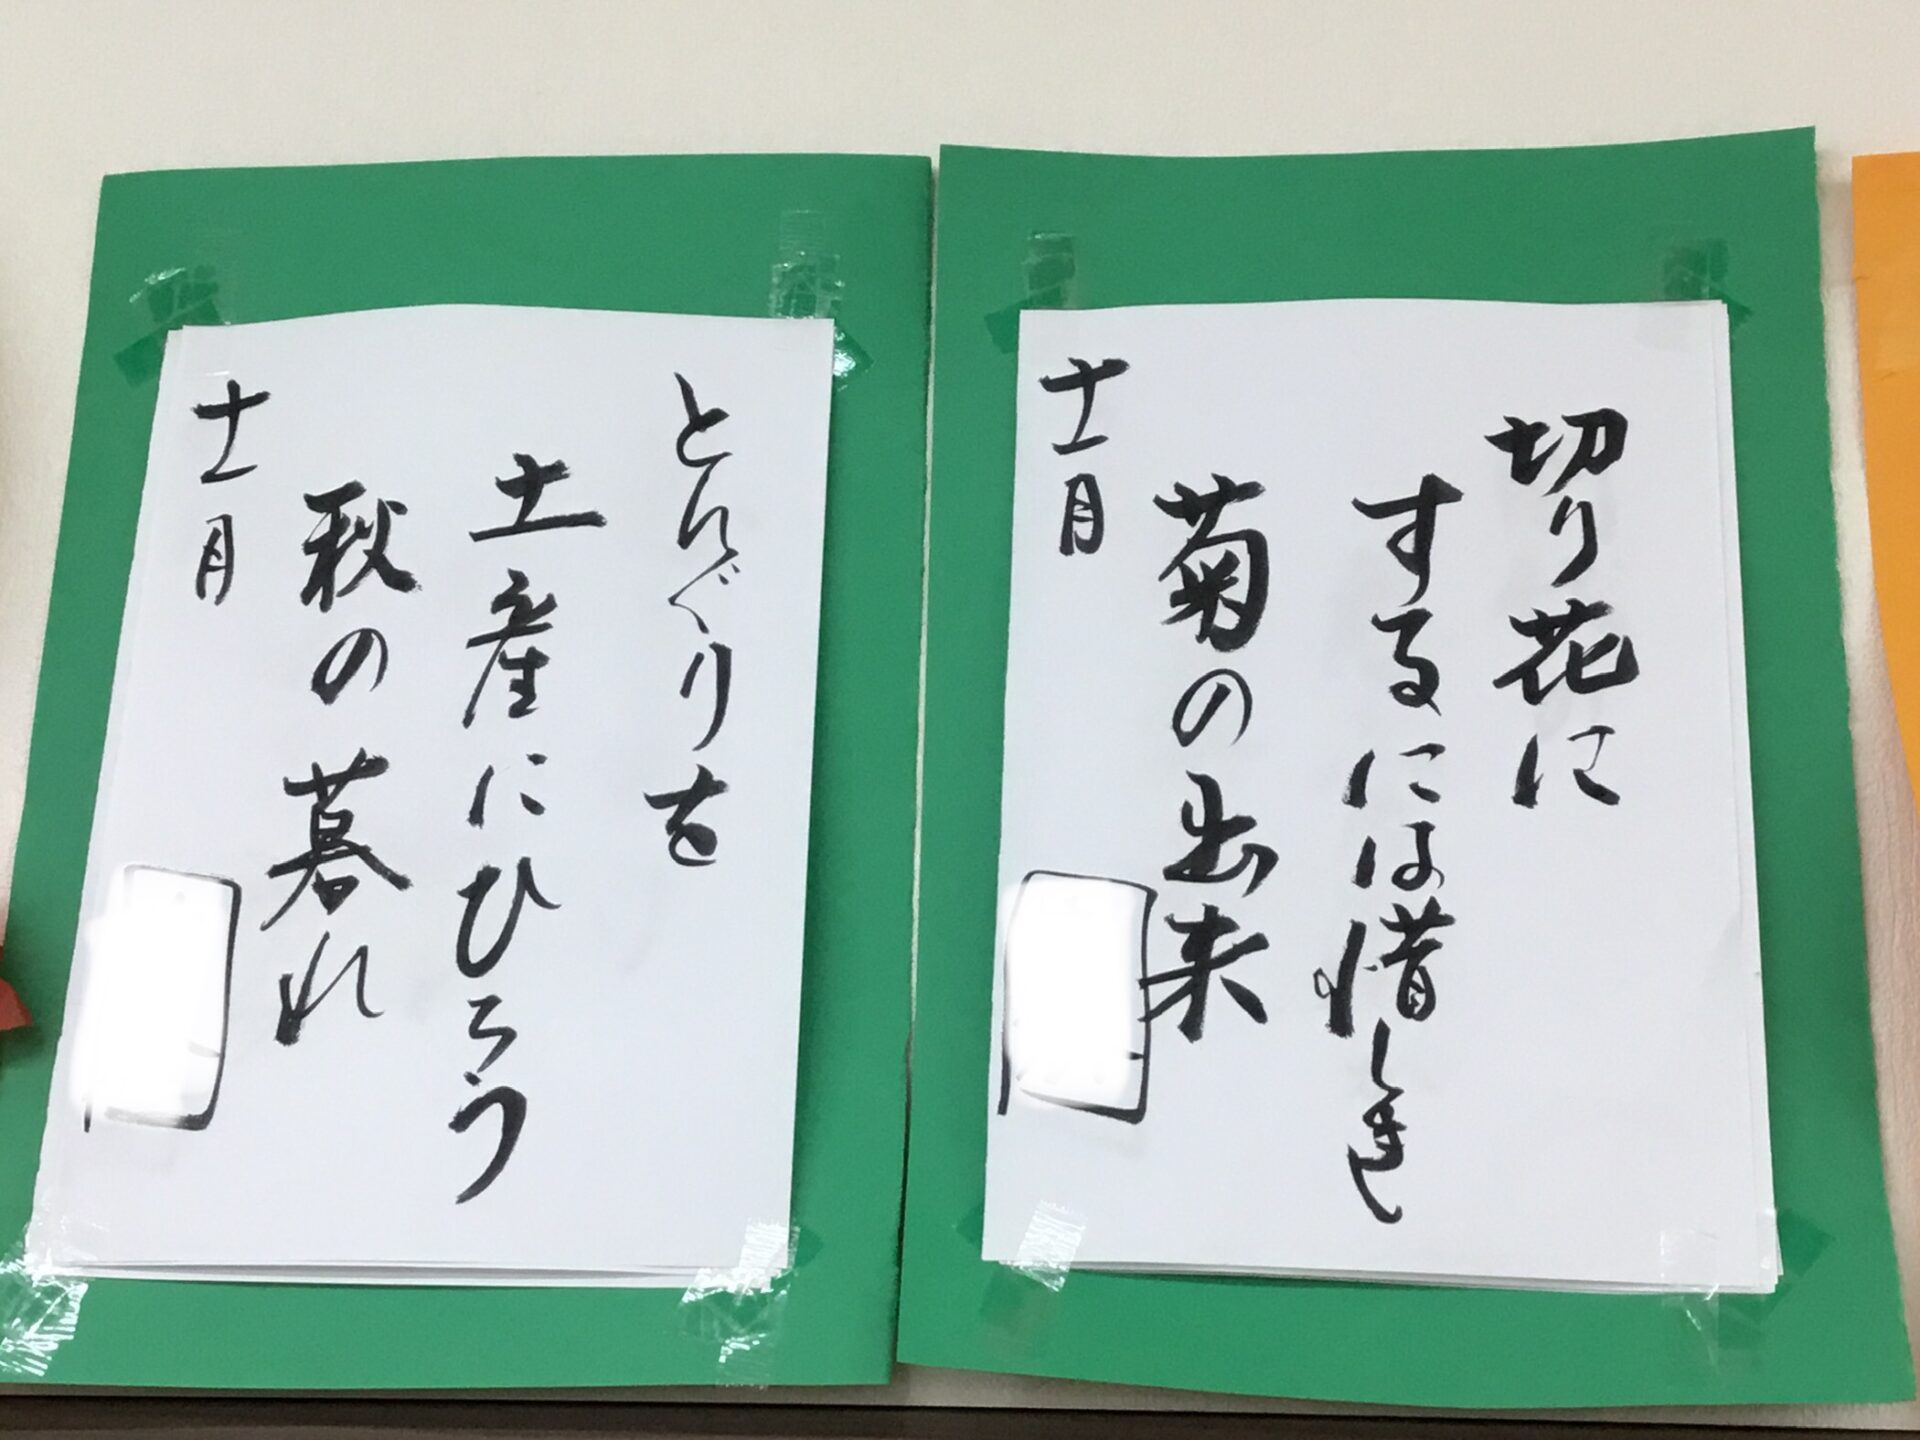 切り花に
するには惜しき
菊の出来
十一月
どんぐりを
土産にひろう
秋の暮れ
十一月